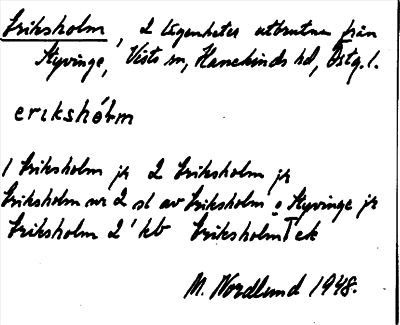 Eriksholm, 2 lägenheter utbrutna från
Styvinge, Vists sn, Hanekinds hd, Östg. l.
erikshólm
1 Eriksholm jr 2 Eriksholm jr
Eriksholm nr 2 sl av Eriksholm o Styvinge jr
Eriksholm 2' kb Eriksholm Tek
M. Nordlund 1948.